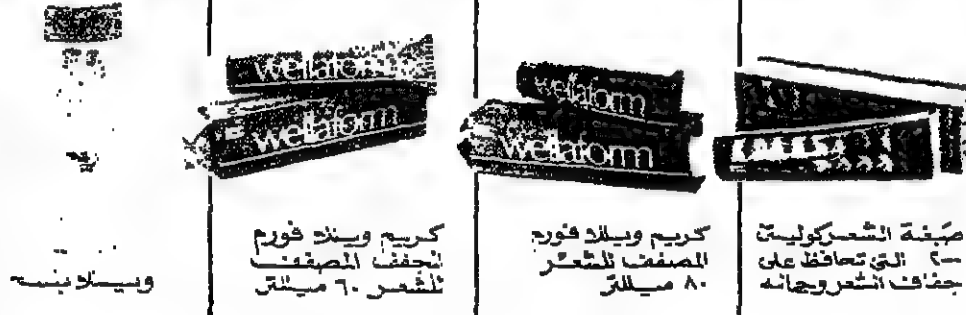 صبغة الشعر كوليستن
٢٠٠٠ التي تحافظ على
جفاف الشعر وجماله
wellaform
wellaform
كريم ويللا فورم
المصفف للشعر
٨٠ ميللتر
wellaform
wellaform
كريم ويللا فورم
المجفف المصفف
للشعر ٦٠ ميللتر